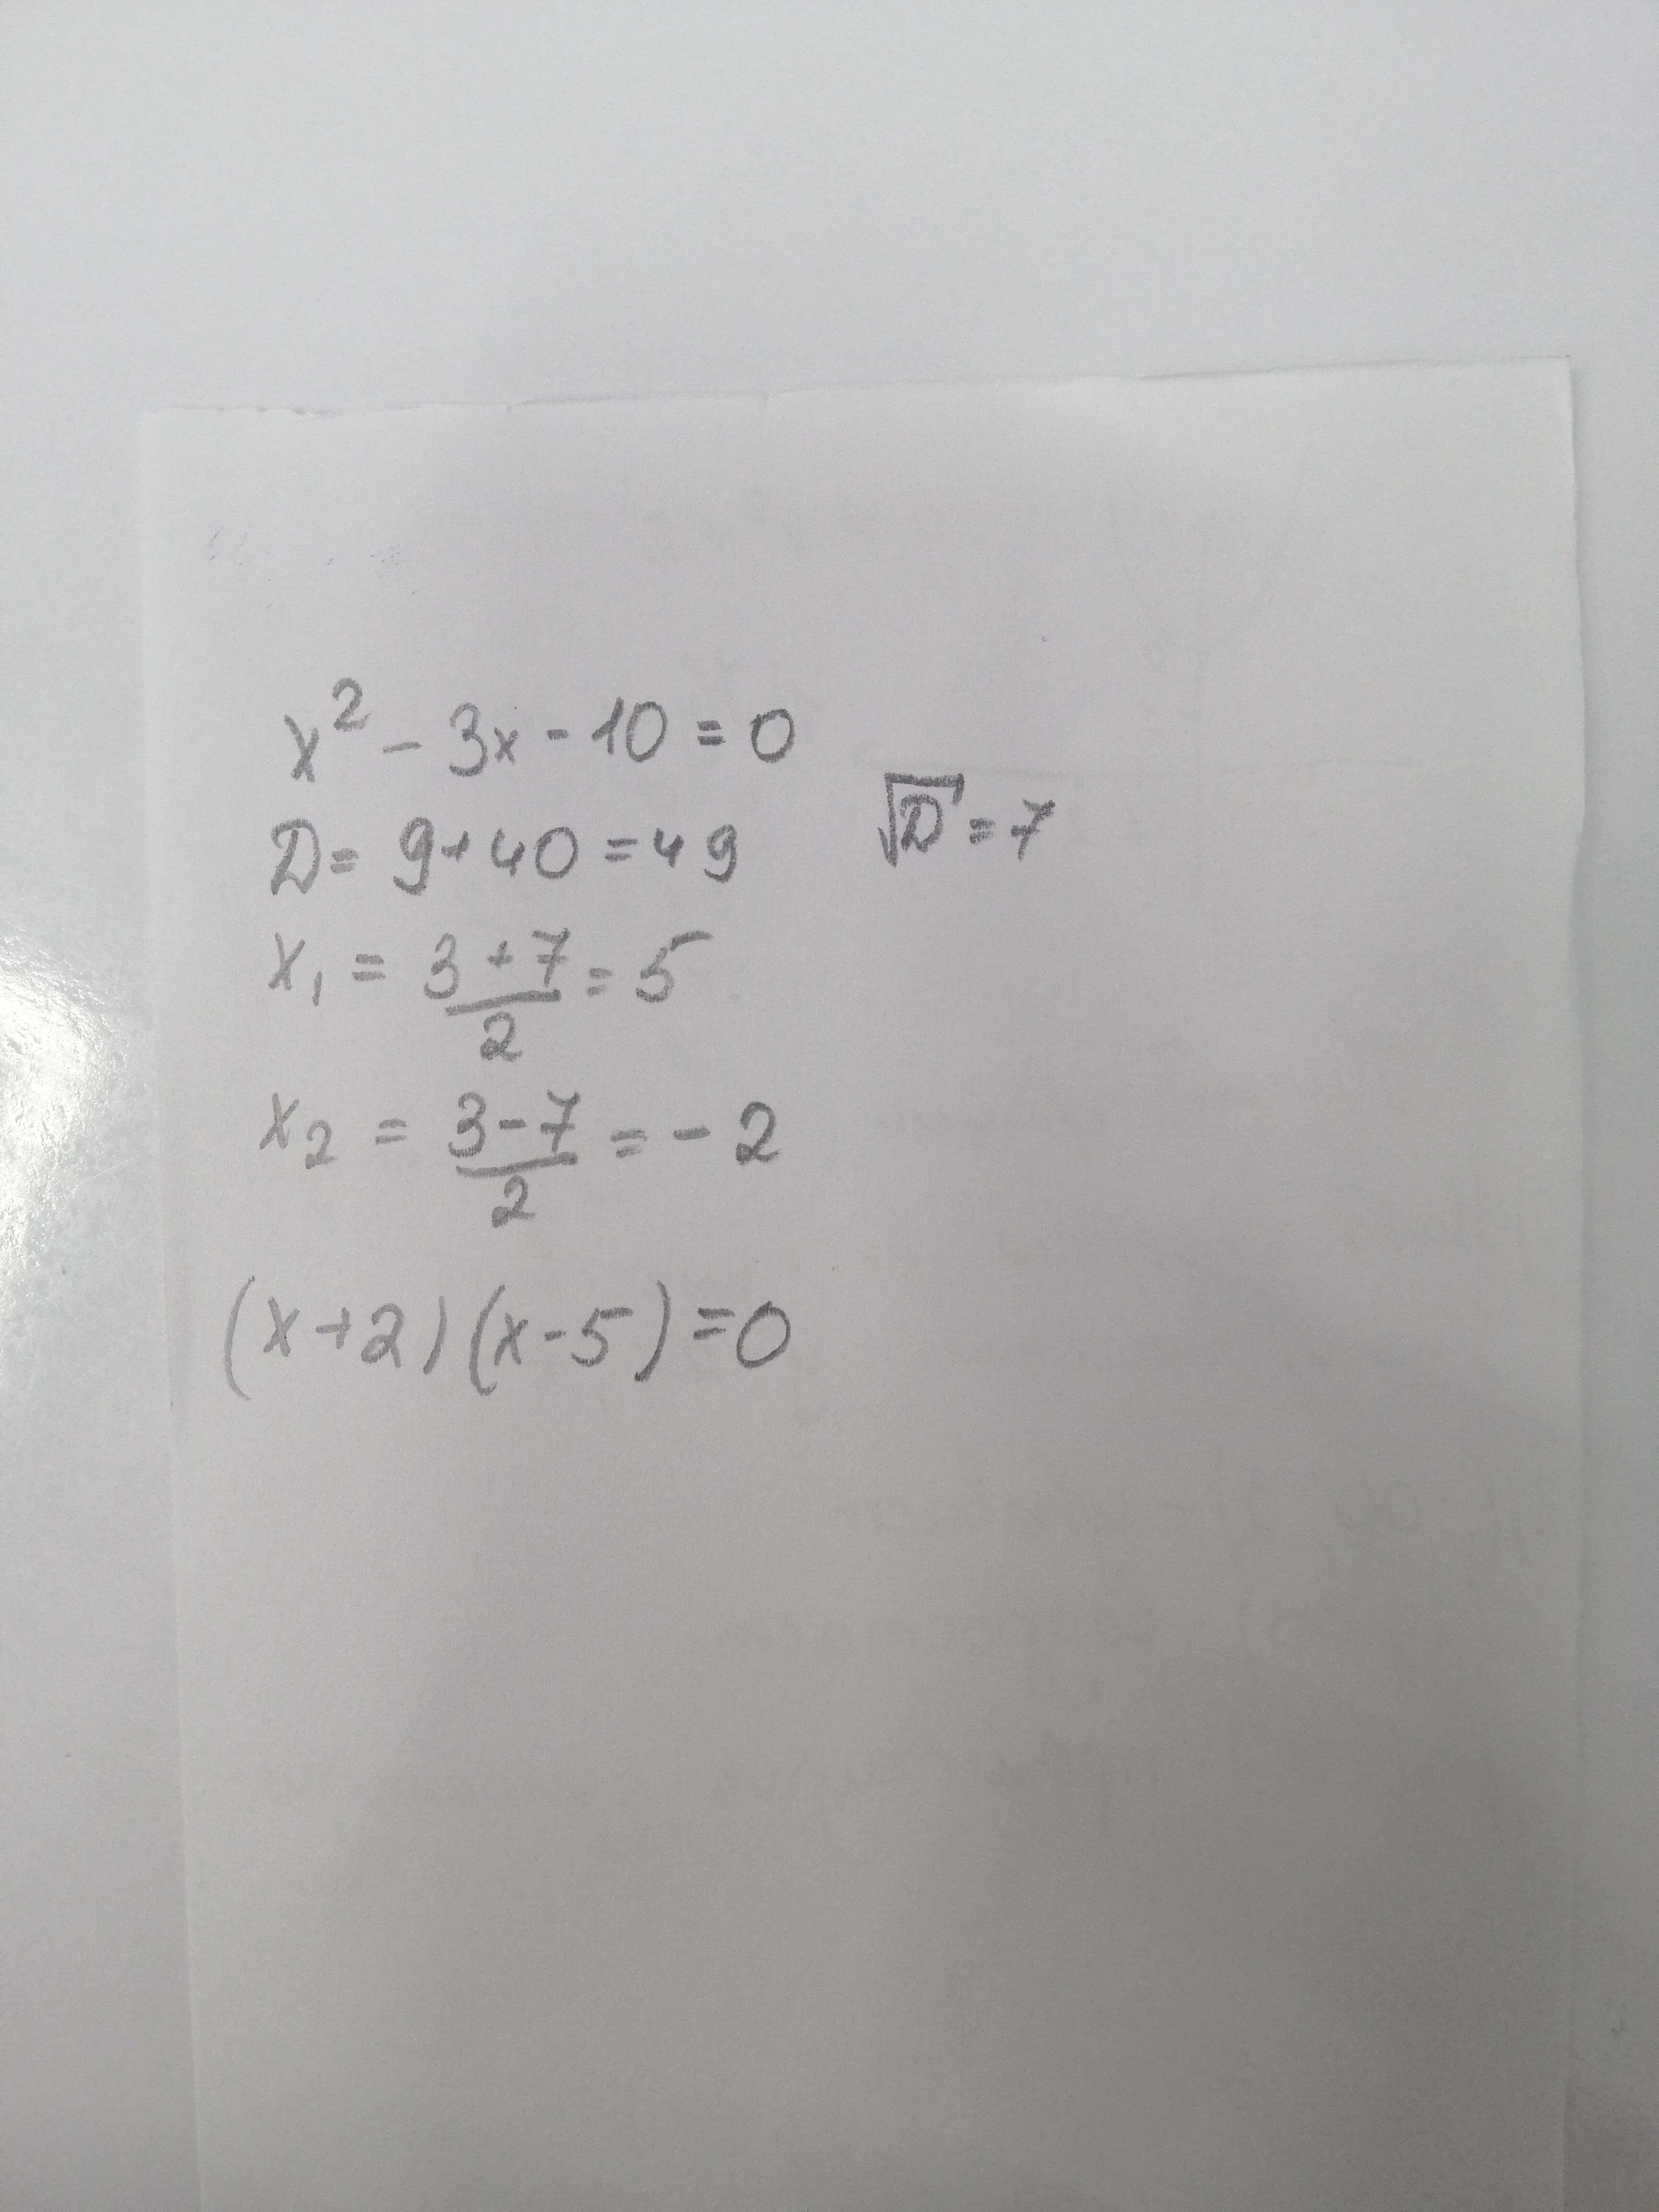 x² - 3x - 10 = 0
D = 9 + 40 = 49 √D = 7
x₁ = (3 + 7)/2 = 5
x₂ = (3 - 7)/2 = -2
(x + 2)(x - 5) = 0